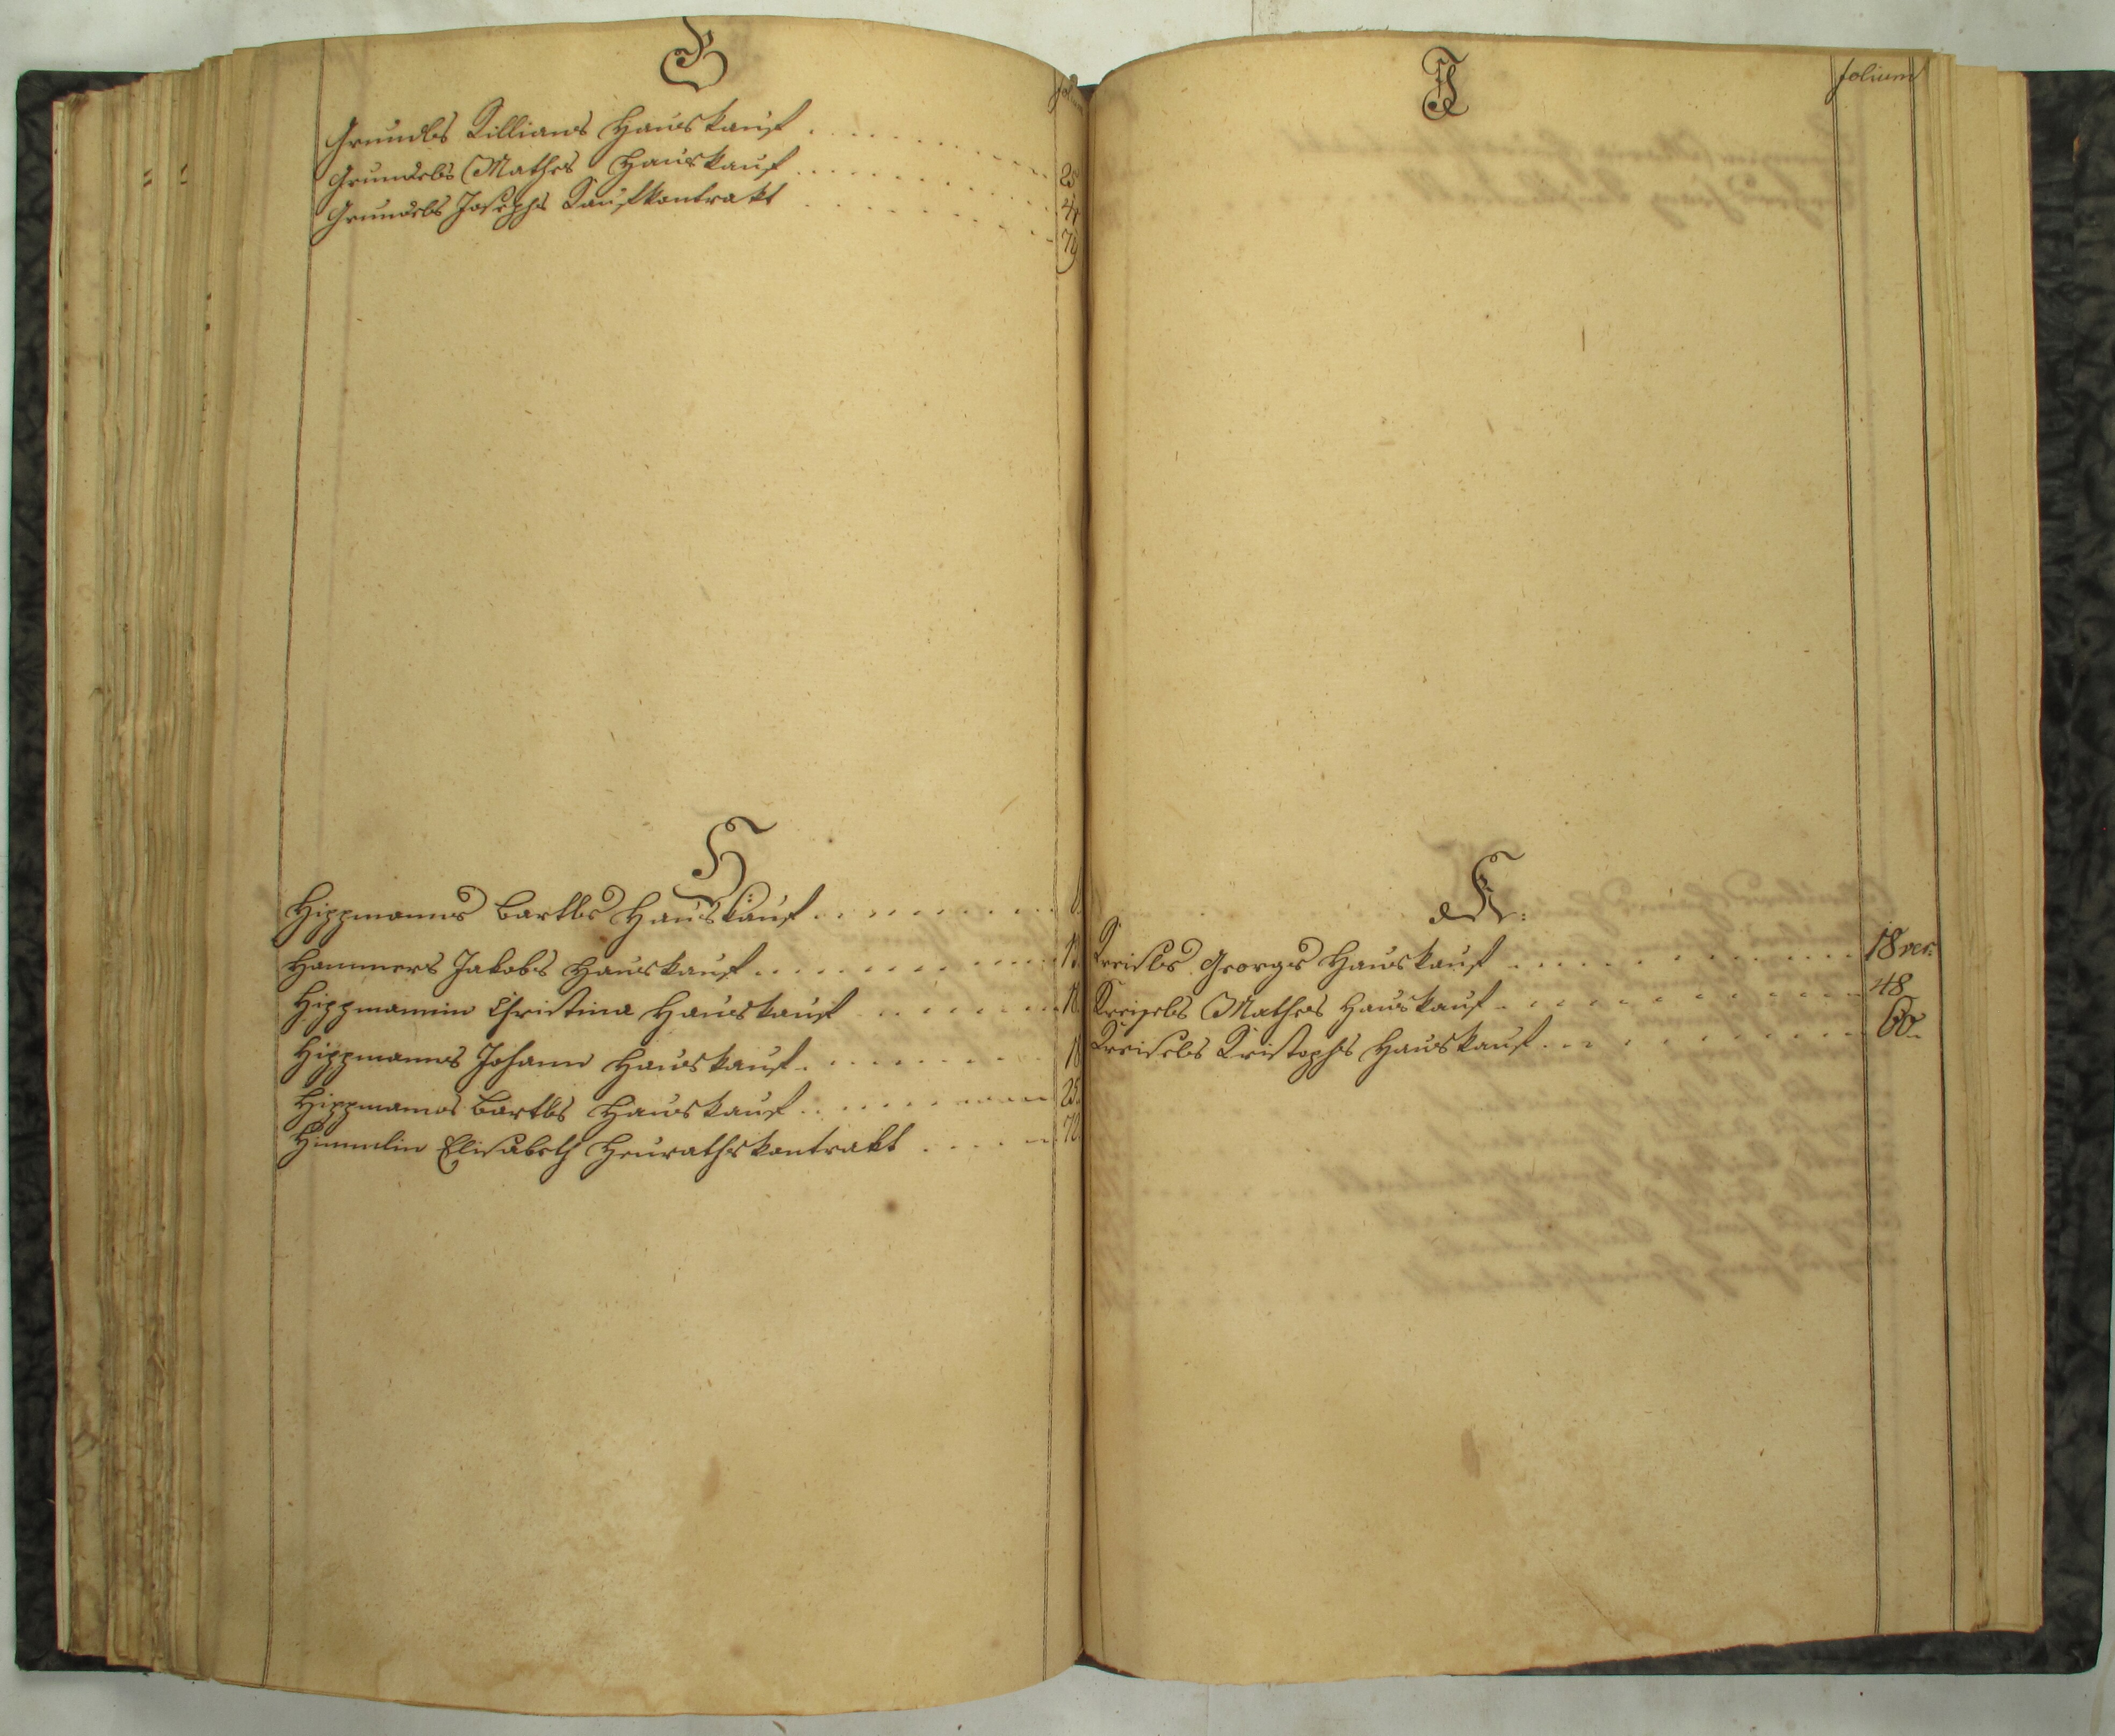 G
Grundls Killians Hauskauf . . . . . . . . . 25
Grundls Mathes Hauskauf . . . . . . . . . 41
Grundls Josephs Kaufkontrakt . . . . . . . . . 70
H
Hippmanns Bartls Hauskauf . . . . . . . . .
Hammers Jakobs Hauskauf . . . . . . . . .
Hippmannin Christina Hauskauf . . . . . . . 18
Hippmanns Johann Hauskauf . . . . . . . 18
Hippmanns Bartls Hauskauf . . . . . . . 25.
Himmlin Elisabeth Heurathskontrakt . . . . . 70.
J
folium
K.
Kreisls Georgs Hauskauf . . . . . . . . . 18 ver.
Kreisels Mathes Hauskauf . . . . . . . . . 48
Kreisels Kristophs Hauskauf . . . . . . . . . 60.